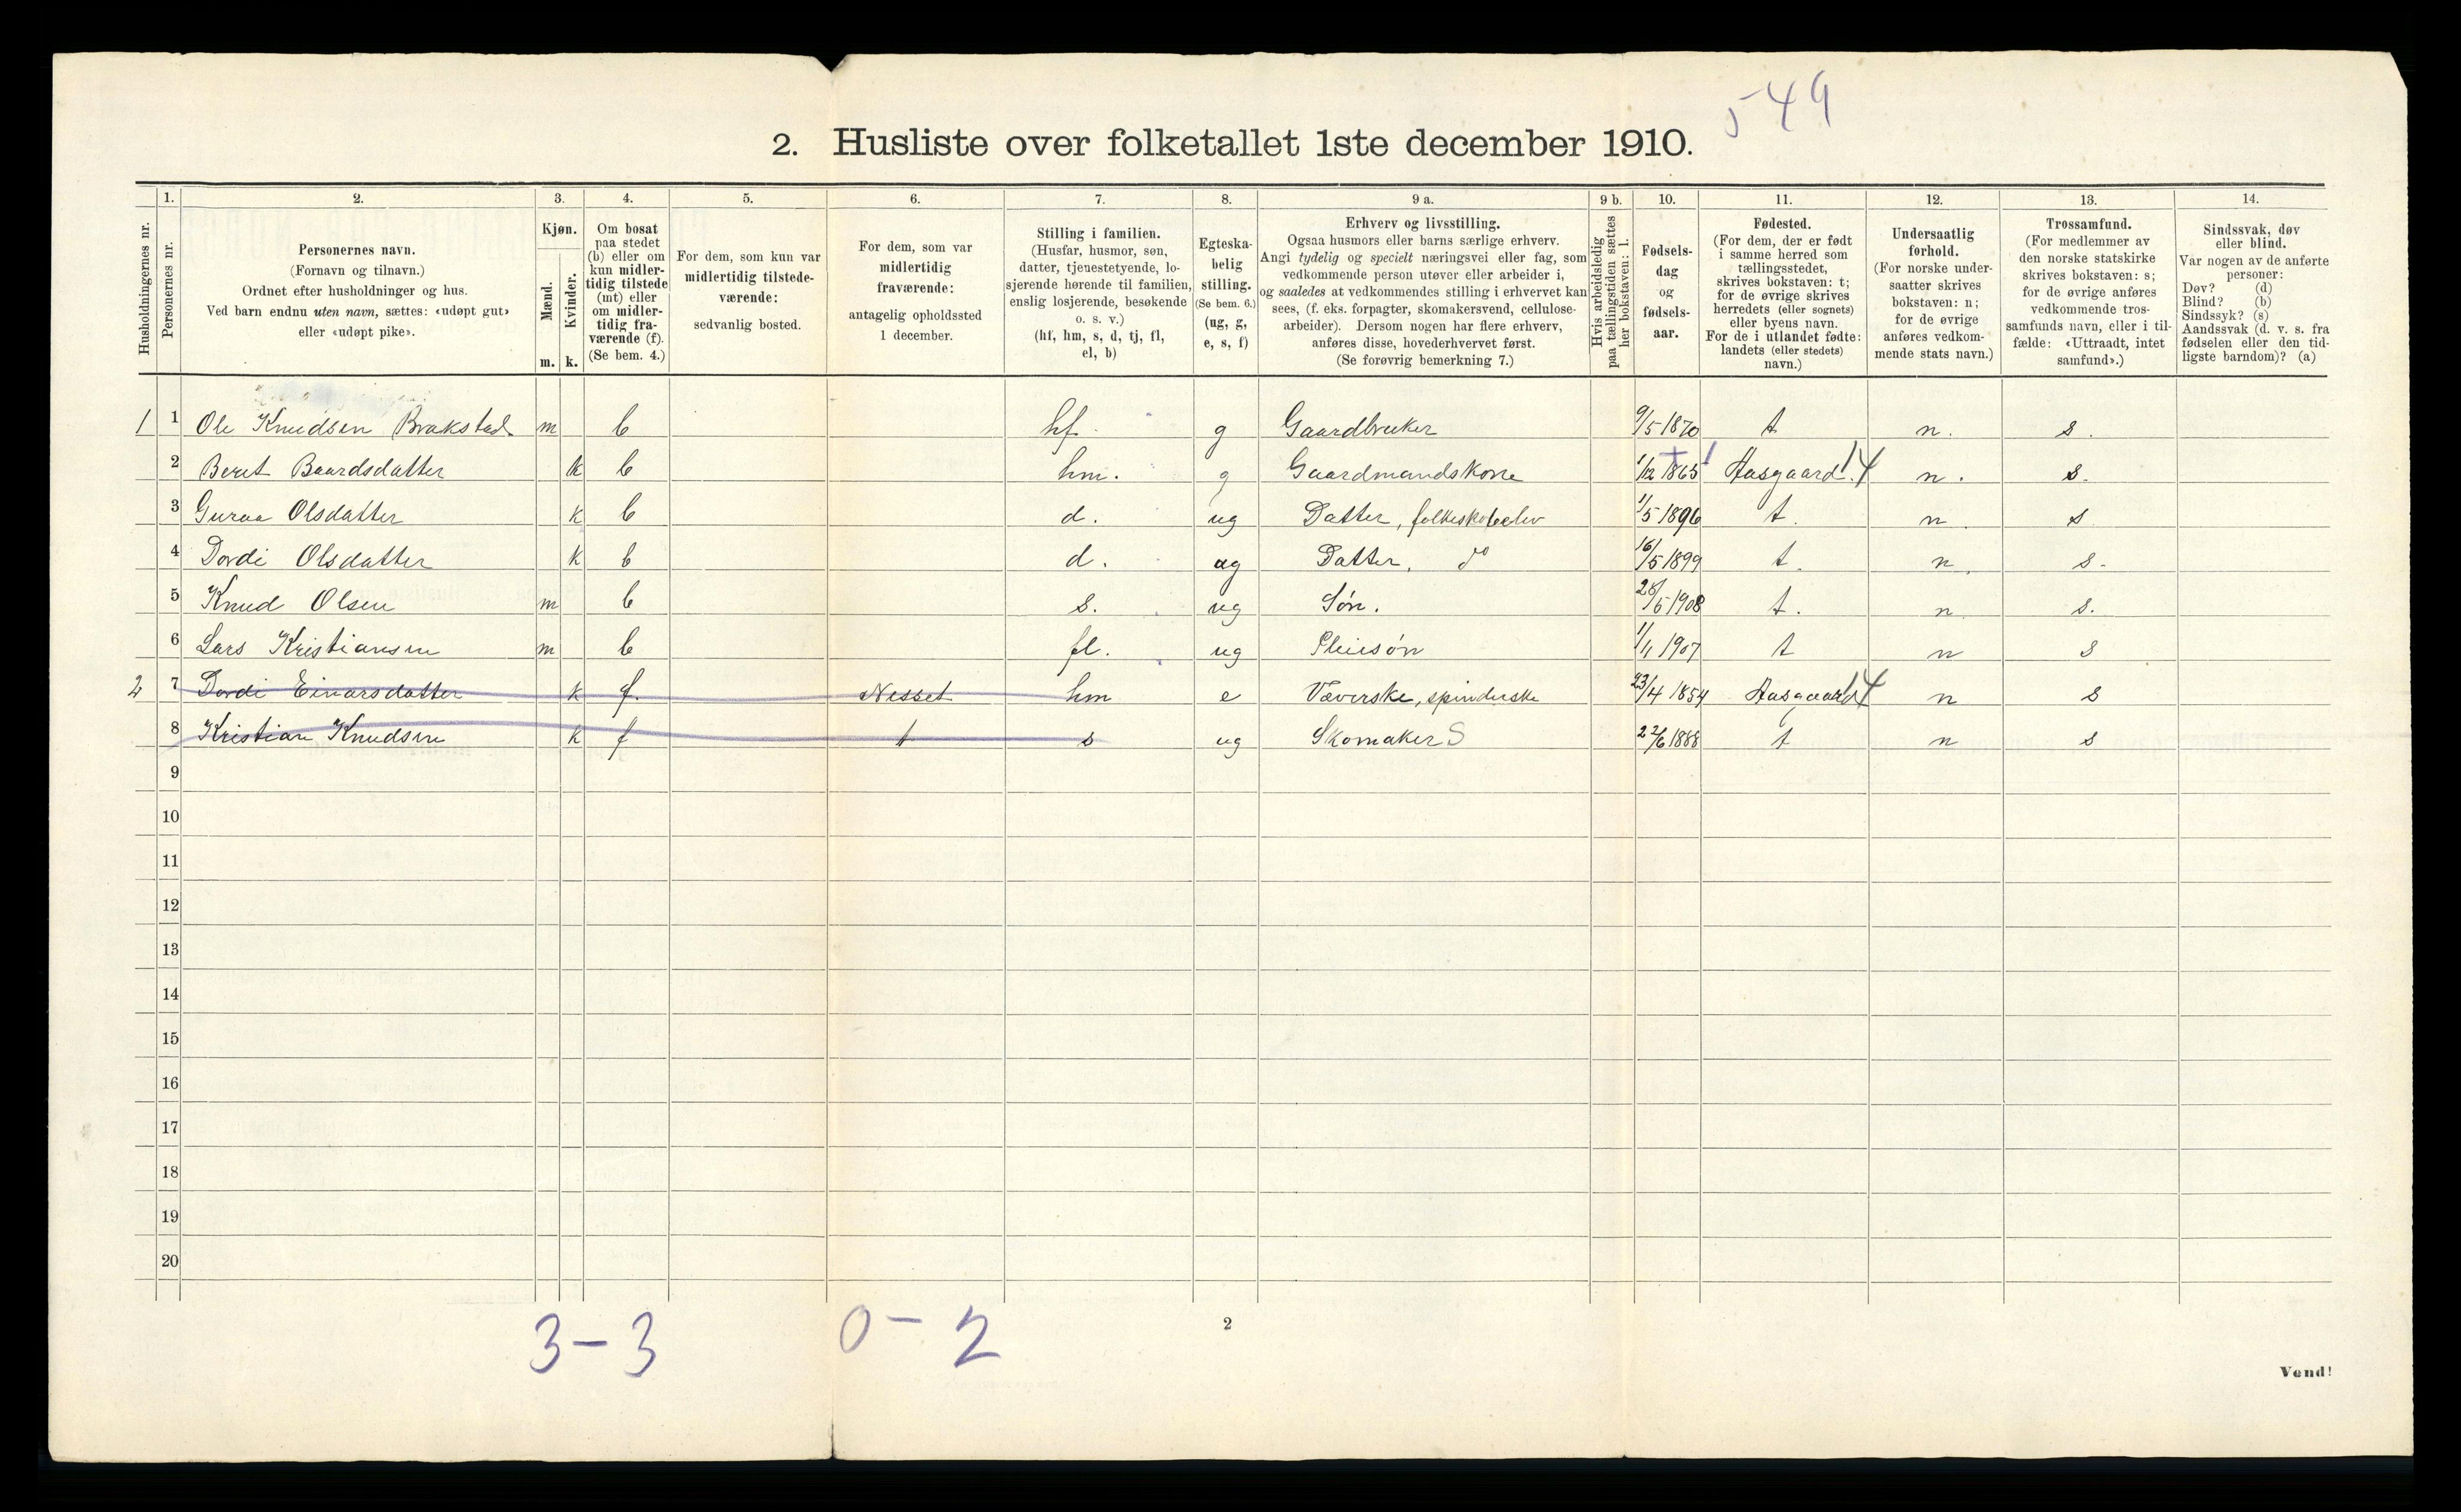 549
2. Husliste over folketallet 1ste december 1910.
Husholdningernes nr.
1. Personernes nr.
2. Personernes navn.
(Fornavn og tilnavn.)
Ordnet efter husholdninger og hus.
Ved barn endnu uten navn, sættes: «udøpt gut»
eller «udøpt pike».
3. Kjøn.
Mænd. m.
Kvinder. k.
4. Om bosat
paa stedet
(b) eller om
kun midler-
tidig tilstede
(mt) eller
om midler-
tidig fra-
værende (f).
(Se bem. 4.)
5. For dem, som kun var
midlertidig tilstede-
værende:
sedvanlig bosted.
6. For dem, som var
midlertidig
fraværende:
antagelig opholdssted
1 december.
7. Stilling i familien.
(Husfar, husmor, søn,
datter, tjenestetyende, lo-
sjerende hørende til familien,
enslig losjerende, besøkende
o. s. v.)
(hf, hm, s, d, tj, fl,
el, b)
8. Egteska-
belig
stilling.
(Se bem. 6.)
(ug, g,
e, s, f)
9 a. Erhverv og livsstilling.
Ogsaa husmors eller barns særlige erhverv.
Angi tydelig og specielt næringsvei eller fag, som
vedkommende person utøver eller arbeider i,
og saaledes at vedkommendes stilling i erhvervet kan
sees, (f. eks. forpagter, skomakersvend, cellulose-
arbeider). Dersom nogen har flere erhverv,
anføres disse, hovederhvervet først.
(Se forøvrig bemerkning 7.)
9 b. Hvis arbeidsledig
paa tællingstiden sættes
her bokstaven: l.
10. Fødsels-
dag
og
fødsels-
aar.
11. Fødested.
(For dem, der er født
i samme herred som
tællingsstedet,
skrives bokstaven: t;
for de øvrige skrives
herredets (eller sognets)
eller byens navn.
For de i utlandet fødte:
landets (eller stedets)
navn.)
12. Undersaatlig
forhold.
(For norske under-
saatter skrives
bokstaven: n;
for de øvrige
anføres vedkom-
mende stats navn.)
13. Trossamfund.
(For medlemmer av
den norske statskirke
skrives bokstaven: s;
for de øvrige anføres
vedkommende tros-
samfunds navn, eller i til-
fælde: «Uttraadt, intet
samfund».)
14. Sindssvak, døv
eller blind.
Var nogen av de anførte
personer:
Døv? (d)
Blind? (b)
Sindssyk? (s)
Aandssvak (d. v. s. fra
fødselen eller den tid-
ligste barndom)? (a)
1 1 Ole Knudsen Brakstad m b hf. g Gaardbruker 9/5 1870 t n. s.
2 Beret Baardsdatter k b hm. g Gaardmandskone 1/12 1865 Aasgaard. 14 n. s.
3 Guraa Olsdatter k b d. ug Datter, folkeskoleelev 1/5 1896 t. n. s
4 Dordi Olsdatter k b d. ug Datter, do 16/5 1899 t. n. s.
5 Knud Olsen m b s. ug Søn. 28/5 1908 t. n. s.
6 Lars Kristiansen m b fl. ug Pleiesøn 1/1 1907 t n s
2 7 Dordi Einarsdatter k f. Nesset hm e Væverske, spinderske 23/4 1854 Aasgaard 14 n s
8 Kristian Knudsen k f t s ug Skomaker S 22/6 1888 t n s
9
10
11
12
13
14
15
16
17
18
19
20
3 - 3 0 - 2
2
Vend!